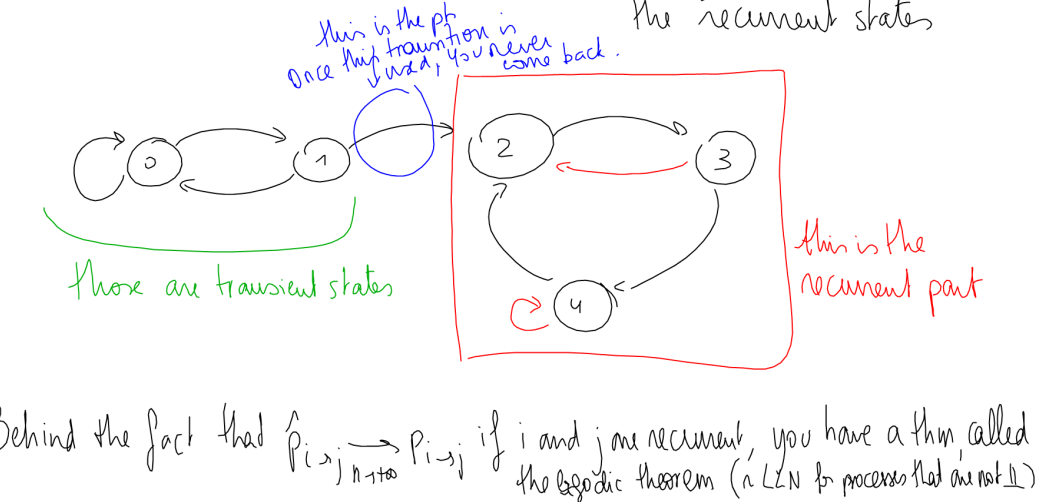 the recurrent states
this is the pt
Once this transition is
used, you never
come back.
0
1
2
3
4
those are transient states
this is the
recurrent part
Behind the fact that p̂ᵢ→ⱼ ⟶ pᵢ→ⱼ if i and j are recurrent, you have a thm called
n→+∞
the Ergodic theorem (~ LLN for processes that are not ⫫)